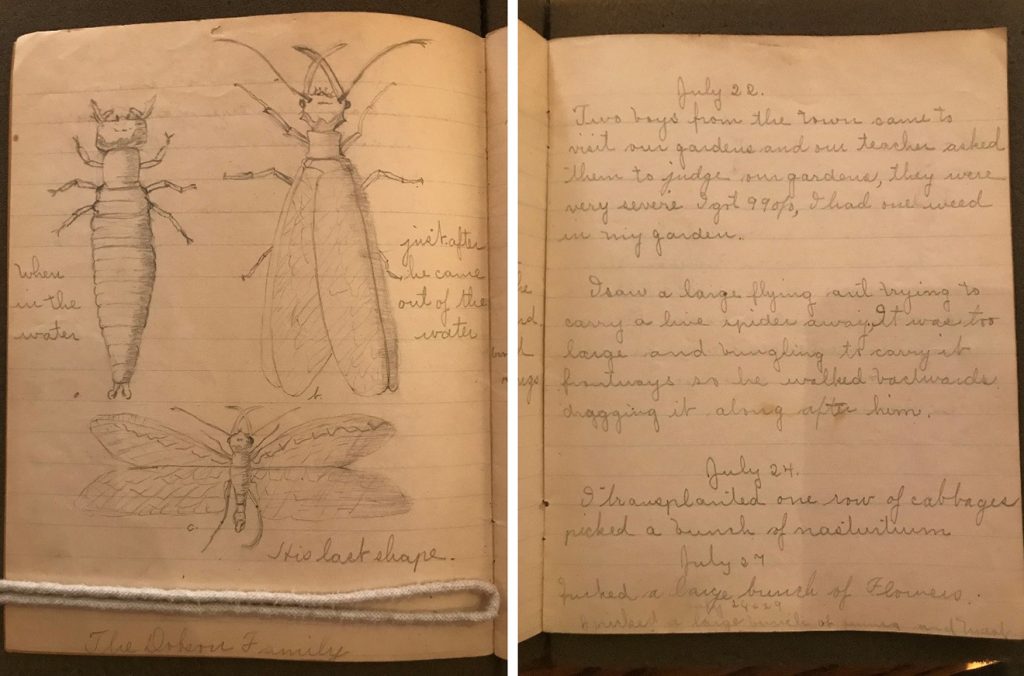 when
in the
water
just after
he came
out of the
water
b.
c.
His last shape.
The Dobson Family
July 22.
Two boys from the town came to
visit our gardens and our teacher asked
them to judge our gardens, they were
very severe I got 99%, I had one weed
in my garden.
I saw a large flying ant trying to
carry a live spider away, It was too
large and bungling to carry it
frontways so he walked backwards,
dragging it along after him.
July 24.
I transplanted one row of cabbages
picked a bunch of nasturtium
July 27
Picked a large bunch of Flowers.
I picked a large bunch of